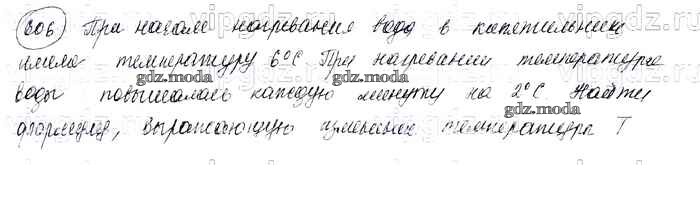 606 При начале нагревания вода в кипятильнике
имела температуру 6°С При нагревании температура
воды повышалась каждую минуту на 2°С Найти
формулу, выражающую изменение температуры T
gdz.moda gdz.moda gdz.moda
gdz.moda gdz.moda gdz.moda